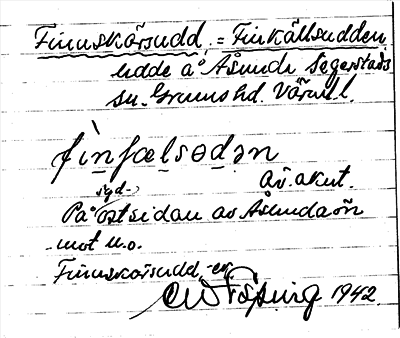 Finnskärsudd = Finkällsudden
udde å Åsundi Segerstads
sn. Grums hd. Värml.
fìnfælsɵdən
av. akut.
syd-
På ostsidan av Åsundaön
mot n.o.
Finnskärsudd, -en
1942.